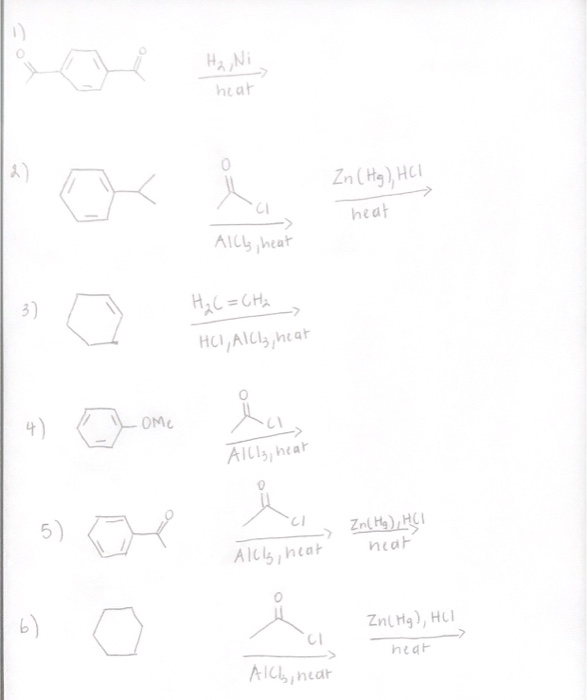 1)
O O
H2,Ni
heat
2)
O
Cl
AlCl3,heat
Zn(Hg),HCl
heat
3)
H2C=CH2
HCl,AlCl3,heat
4)
OMe
O
Cl
AlCl3,heat
5)
O
O
Cl
AlCl3,heat
Zn(Hg),HCl
heat
6)
O
Cl
AlCl3,heat
Zn(Hg), HCl
heat